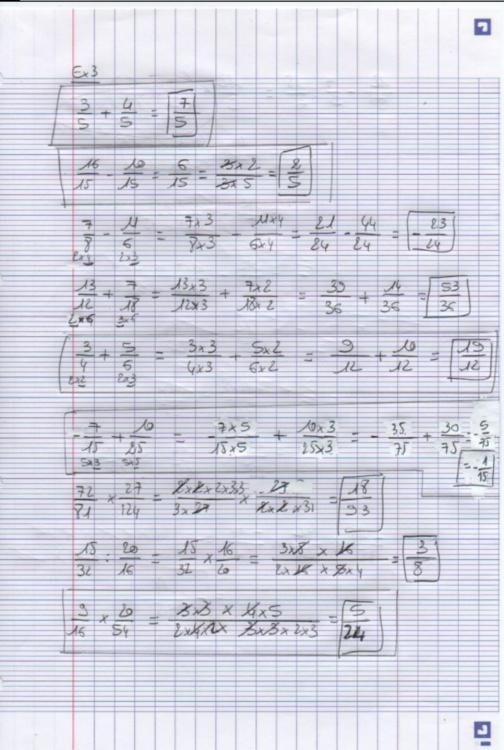 Ex3
3/5 + 4/5 = 7/5
16/15 - 10/15 = 6/15 = 3×2/3×5 = 2/5
7/8 - 11/6 = 7×3/8×3 - 11×4/6×4 = 21/24 - 44/24 = - 23/24
2×4 2×3
13/12 + 7/18 = 13×3/12×3 + 7×2/18×2 = 39/36 + 14/36 = 53/36
2×6 3×6
3/4 + 5/6 = 3×3/4×3 + 5×2/6×2 = 9/12 + 10/12 = 19/12
2×2 2×3
- 7/15 + 10/25 = - 7×5/15×5 + 10×3/25×3 = - 35/75 + 30/75 = - 5/75
5×3 5×5
= - 1/15
72/81 × 27/124 = 18/93
15/32 : 20/16 = 15/32 × 16/20 = 3×5 × 16/2×16 × 5×4 = 3/8
9/16 × 20/54 = 3×3 × 4×5/2×4×2× 3×3×2×3 = 5/24